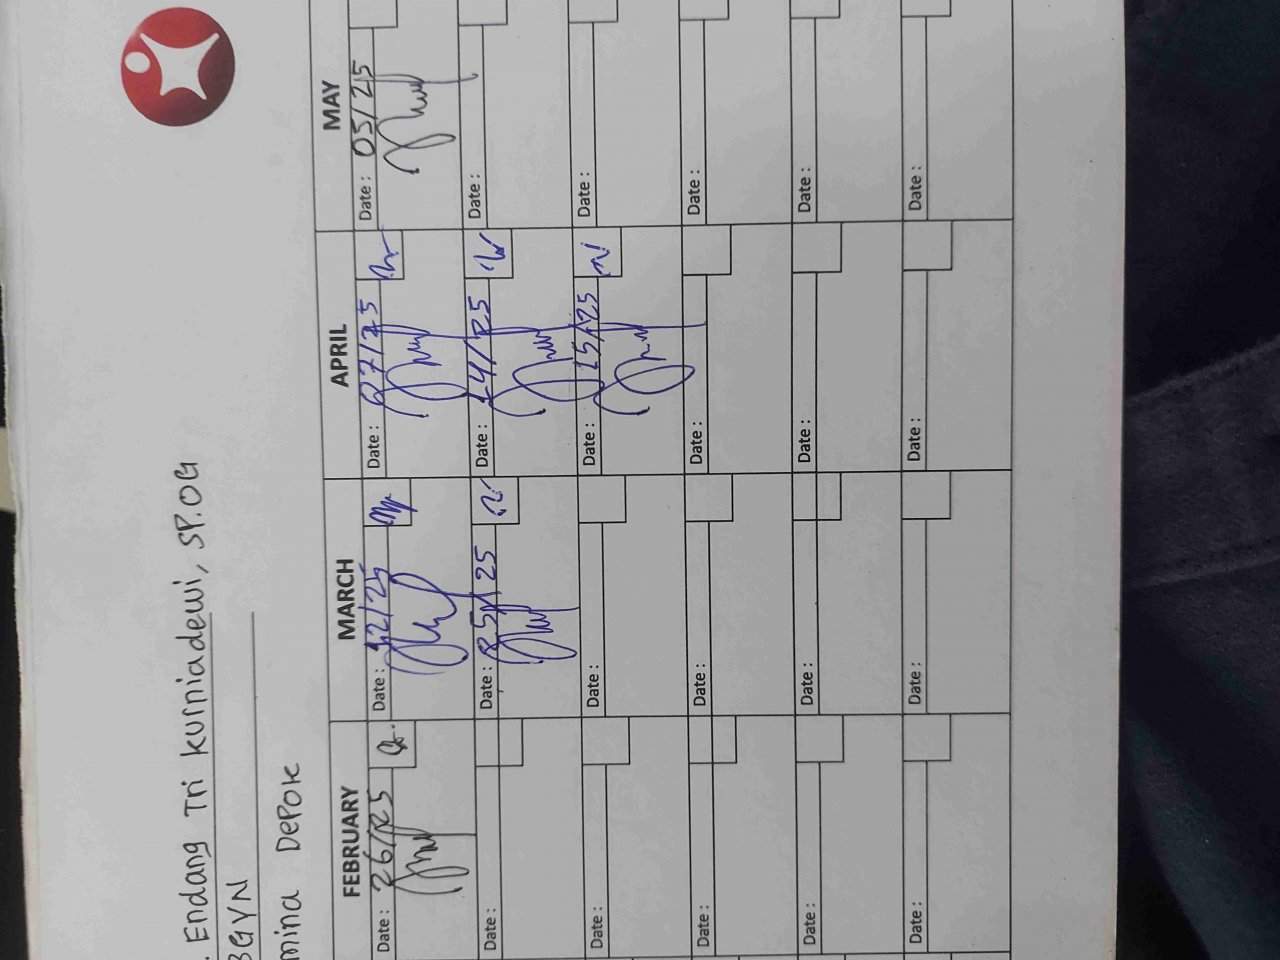 . Endang Tri Kurniadewi, SP.OG
BGYN
mina Depok
FEBRUARY MARCH APRIL MAY
Date : 26/25 Date : 12/25 Date : 07/25 Date : 05/25
Date : Date : 25/25 Date : 14/25 Date :
Date : Date : Date : 15/25 Date :
Date : Date : Date : Date :
Date : Date : Date : Date :
Date : Date : Date : Date :